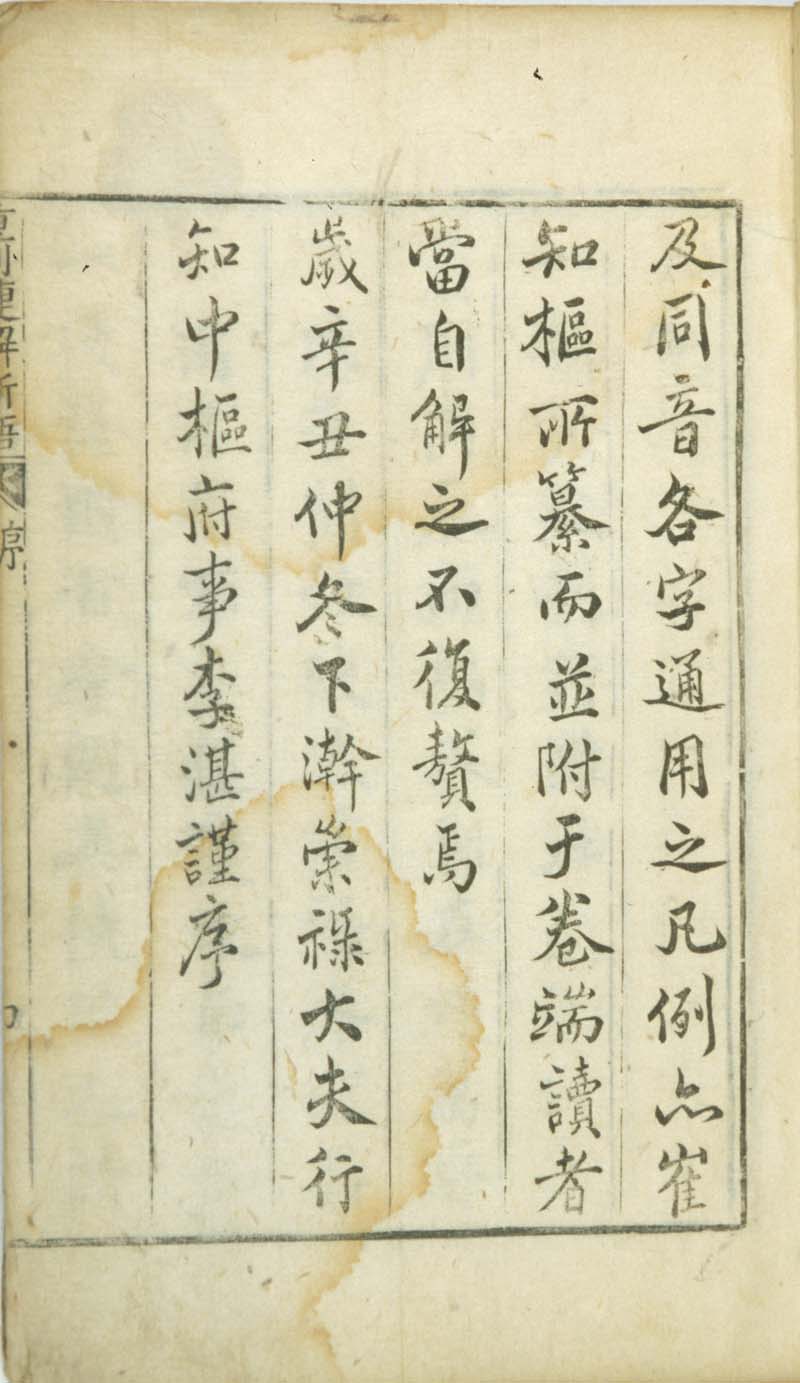 及同音各字通用之凡例亦崔
知樞所纂而並附于卷端讀者
當自解之不復贅焉
歲辛丑仲冬下澣崇祿大夫行
知中樞府事李湛謹序
重刊捷解新語 序